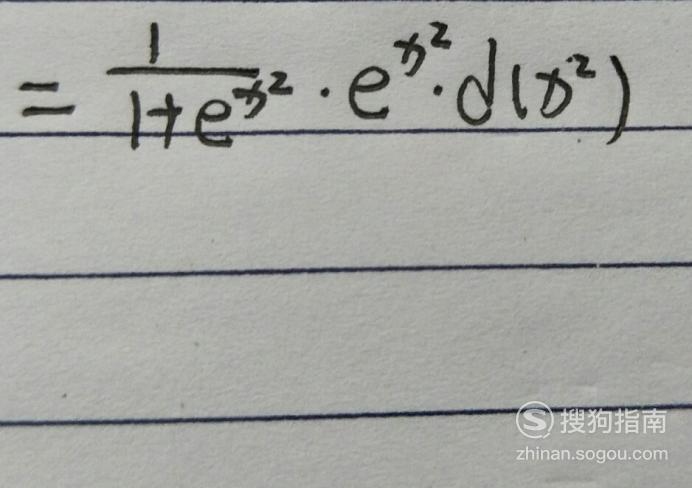 = \frac{1}{1+e^{x^2}} · e^{x^2} · d(x^2)
搜狗指南
zhinan.sogou.com